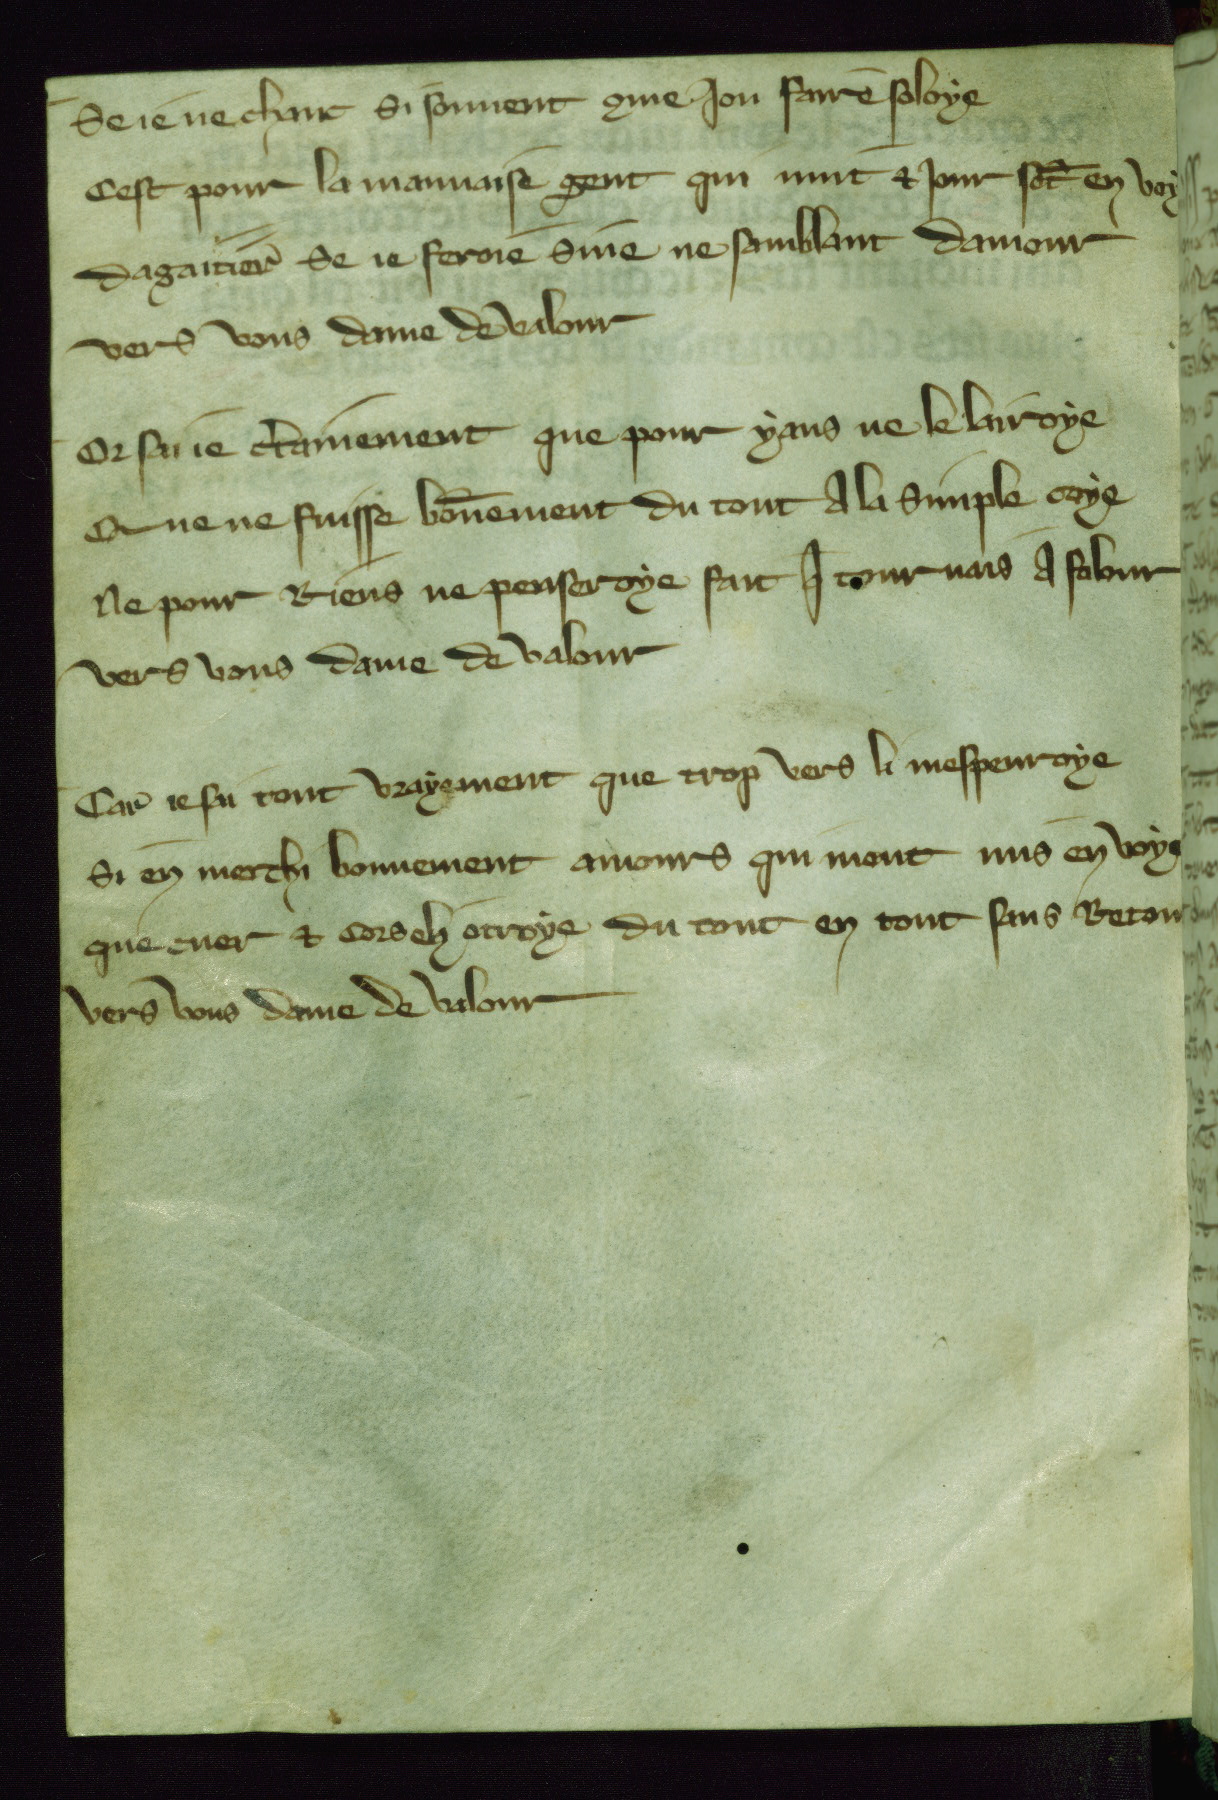 Se ie ne chant si souuent que Jou faire soloye
Cest pour la mauuaise gent qui nuit & Jour sōt en voy
dagaitier se ie feroie Sine ne samblant damour
vers vous dame de valour
Or sai ie c̄tainement que pour yaus ne le lairoye
Que ne fuisse bōnement du tout A la simple coye
Ne pour Riens ne penseroye fait J tour uais A folour
vers vous dame de valour
Car ie sai tout vrayement que trop vers li mesprenroye
Si en merchi bonnement amours qui mont mis en voye
que cuer & cors otroye du tout en tout sans Retour
vers vous dame de valour